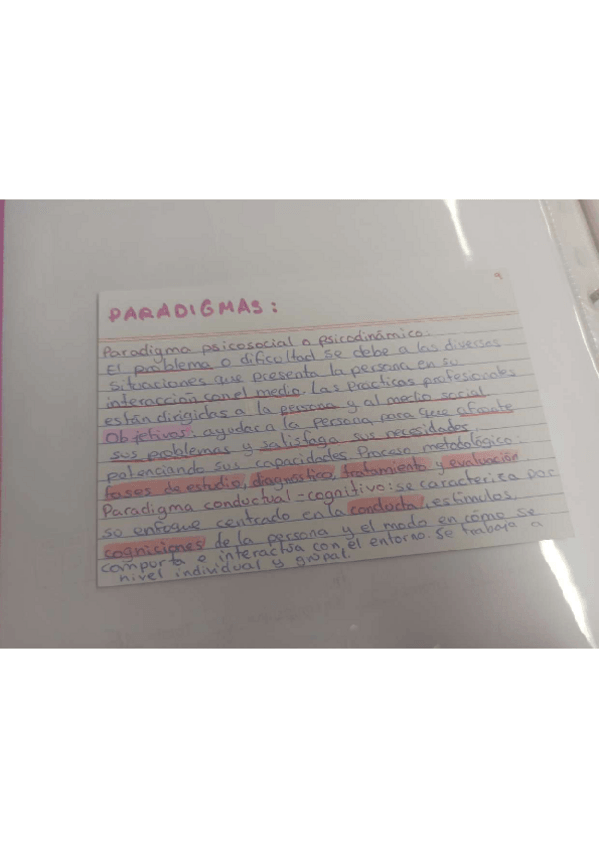 9
PARADIGMAS:
Paradigma psicosocial o psicodinámico:
El problema o dificultad se debe a las diversas
situaciones que presenta la persona en su
interacción con el medio. Las practicas profesionales
están dirigidas a la persona y al medio social
Objetivos: ayudar a la persona para que afronte
sus problemas y satisfaga sus necesidades,
potenciando sus capacidades. Proceso metodológico:
fases de estudio, diagnostico, tratamiento y evaluación
Paradigma conductual-cognitivo: se caracteriza por
so enfoque centrado en la conducta, estímulos,
cogniciones de la persona y el modo en cómo se
comporta e interactúa con el entorno. Se trabaja a
nivel individual y grupal.